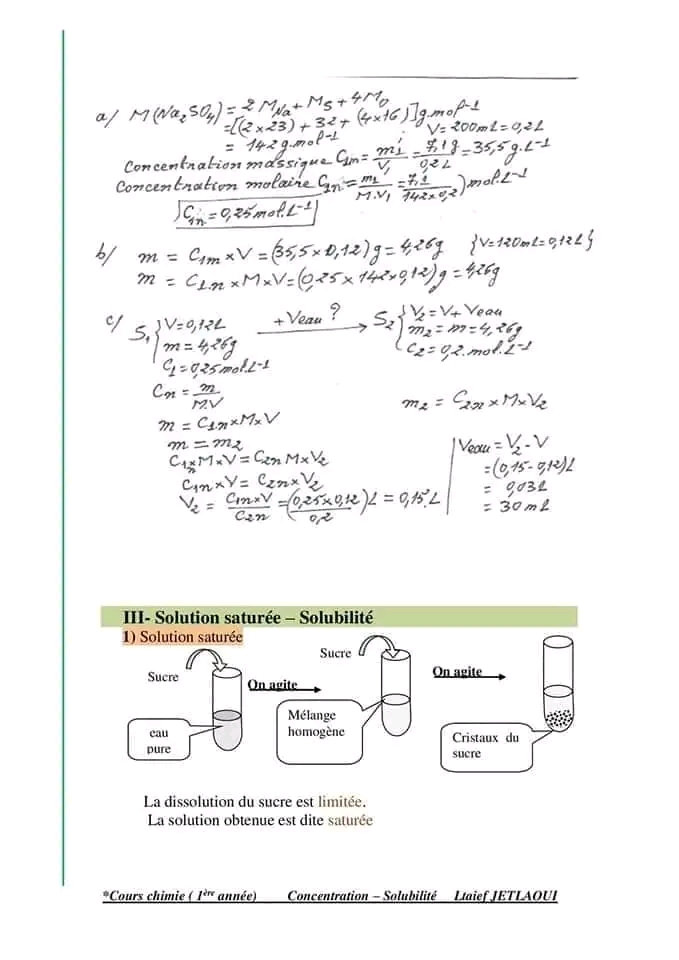 a/ M(Na2SO4) = 2 MNa + MS + 4MO
= [(2 x 23) + 32 + (4x16)] g.mol-1
= 142 g.mol-1 V = 200mL = 0,2L
Concentration massique C1m = m1/V1 = 7,1 g/0,2L = 35,5 g.L-1
Concentration molaire C1n = m1/M.V1 = (7,1/142x0,2) mol.L-1
C1n = 0,25 mol.L-1
b/ m = C1m x V = (35,5 x 0,12) g = 4,26g {V=120mL=0,12L}
m = C1n x M x V = (0,25 x 142 x 0,12) g = 4,26g
c/ S1 { V = 0,12L + Veau ? S2 { V2 = V + Veau
m = 4,26g m2 = m = 4,26g
C1 = 0,25 mol.L-1 C2 = 0,2.mol.L-1
Cn = m/M.V m2 = C2n x M x V2
m = C1n x M x V
m = m2
C1n x M x V = C2n M x V2
C1n x V = C2n x V2
V2 = C1n x V/C2n = (0,25 x 0,12/0,2) L = 0,15 L
Veau = V2 - V
= (0,15 - 0,12)L
= 0,03L
= 30 mL
III- Solution saturée – Solubilité
1) Solution saturée
Sucre
On agite
Sucre
On agite
eau
pure
Mélange
homogène
Cristaux du
sucre
La dissolution du sucre est limitée.
La solution obtenue est dite saturée
*Cours chimie ( 1ère année) Concentration – Solubilité Ltaief JETLAOUI